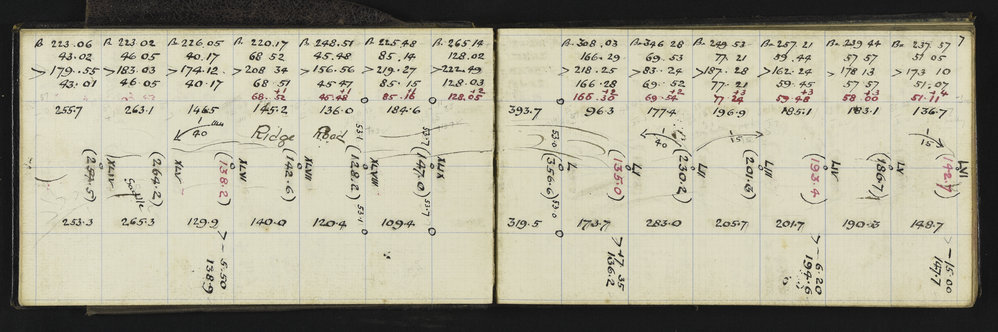 B 223.06 B 223.02 B 226.05 B 220.17 B 248.51 B 225.48 B 265.14
43.02 46.05 40.17 68 52 45.48 85.14 128.02
>179.55 >183.03 >174.12. >208 34 >156.56 >219.27 >222.49
43.01 46.05 40.17 68.51 45.47 85.15 128.03
+1 +1 +1 +2
68.52 45.48 85.16 128.05
255.7 263.1 146.5 145.2 136.0 184.6
40
Ridge Road
53.1
53.7
XLIV XLV XLVI XLVII XLVIII XLIX
(264.2) (138.2) (142.6) (128.2) (147.0)
53.1
53.7
253.3 265.3 129.9 140.0 120.4 109.4
> -5.50
138.9
7
B. 308.03 B=346 28 B= 249.53 B=257.21 B=239.44 B= 237.37
166.29 69.53 77.21 59.44 57 57 51 05
>218.25 >83.24 >187.28 >162.24 >178 13 >173 10
166.28 69.52 77.21 59.45 57 57 51.07
+2 +2 +3 +3 +3 +4
166.30 69.54 77 24 59.48 58.00 51.11
393.7 96.3 177.4 196.9 185.1 183.1 136.7
53.0
40
15
15
L LI LII LIII LIV LV LVI
(356.6) (135.0) (230.2) (201.3) (193.4) (186.7) (142.7)
53.0
319.5 173.7 283.0 205.7 201.7 190.3 148.7
>+7.35
136.2
> -6.20
194.6
> -15.00
147.7